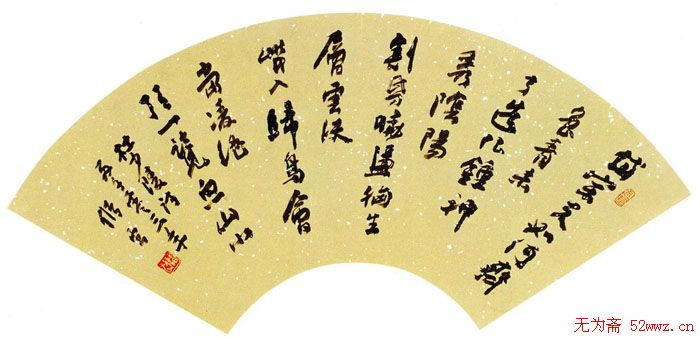 岱宗夫如何齊
魯青未
了造化鍾神
秀陰陽
割昏曉盪胸生
層雲決
眥入歸鳥會
當凌絕
頂一覽众山小
杜少陵詩
无为斋 52wwz.cn